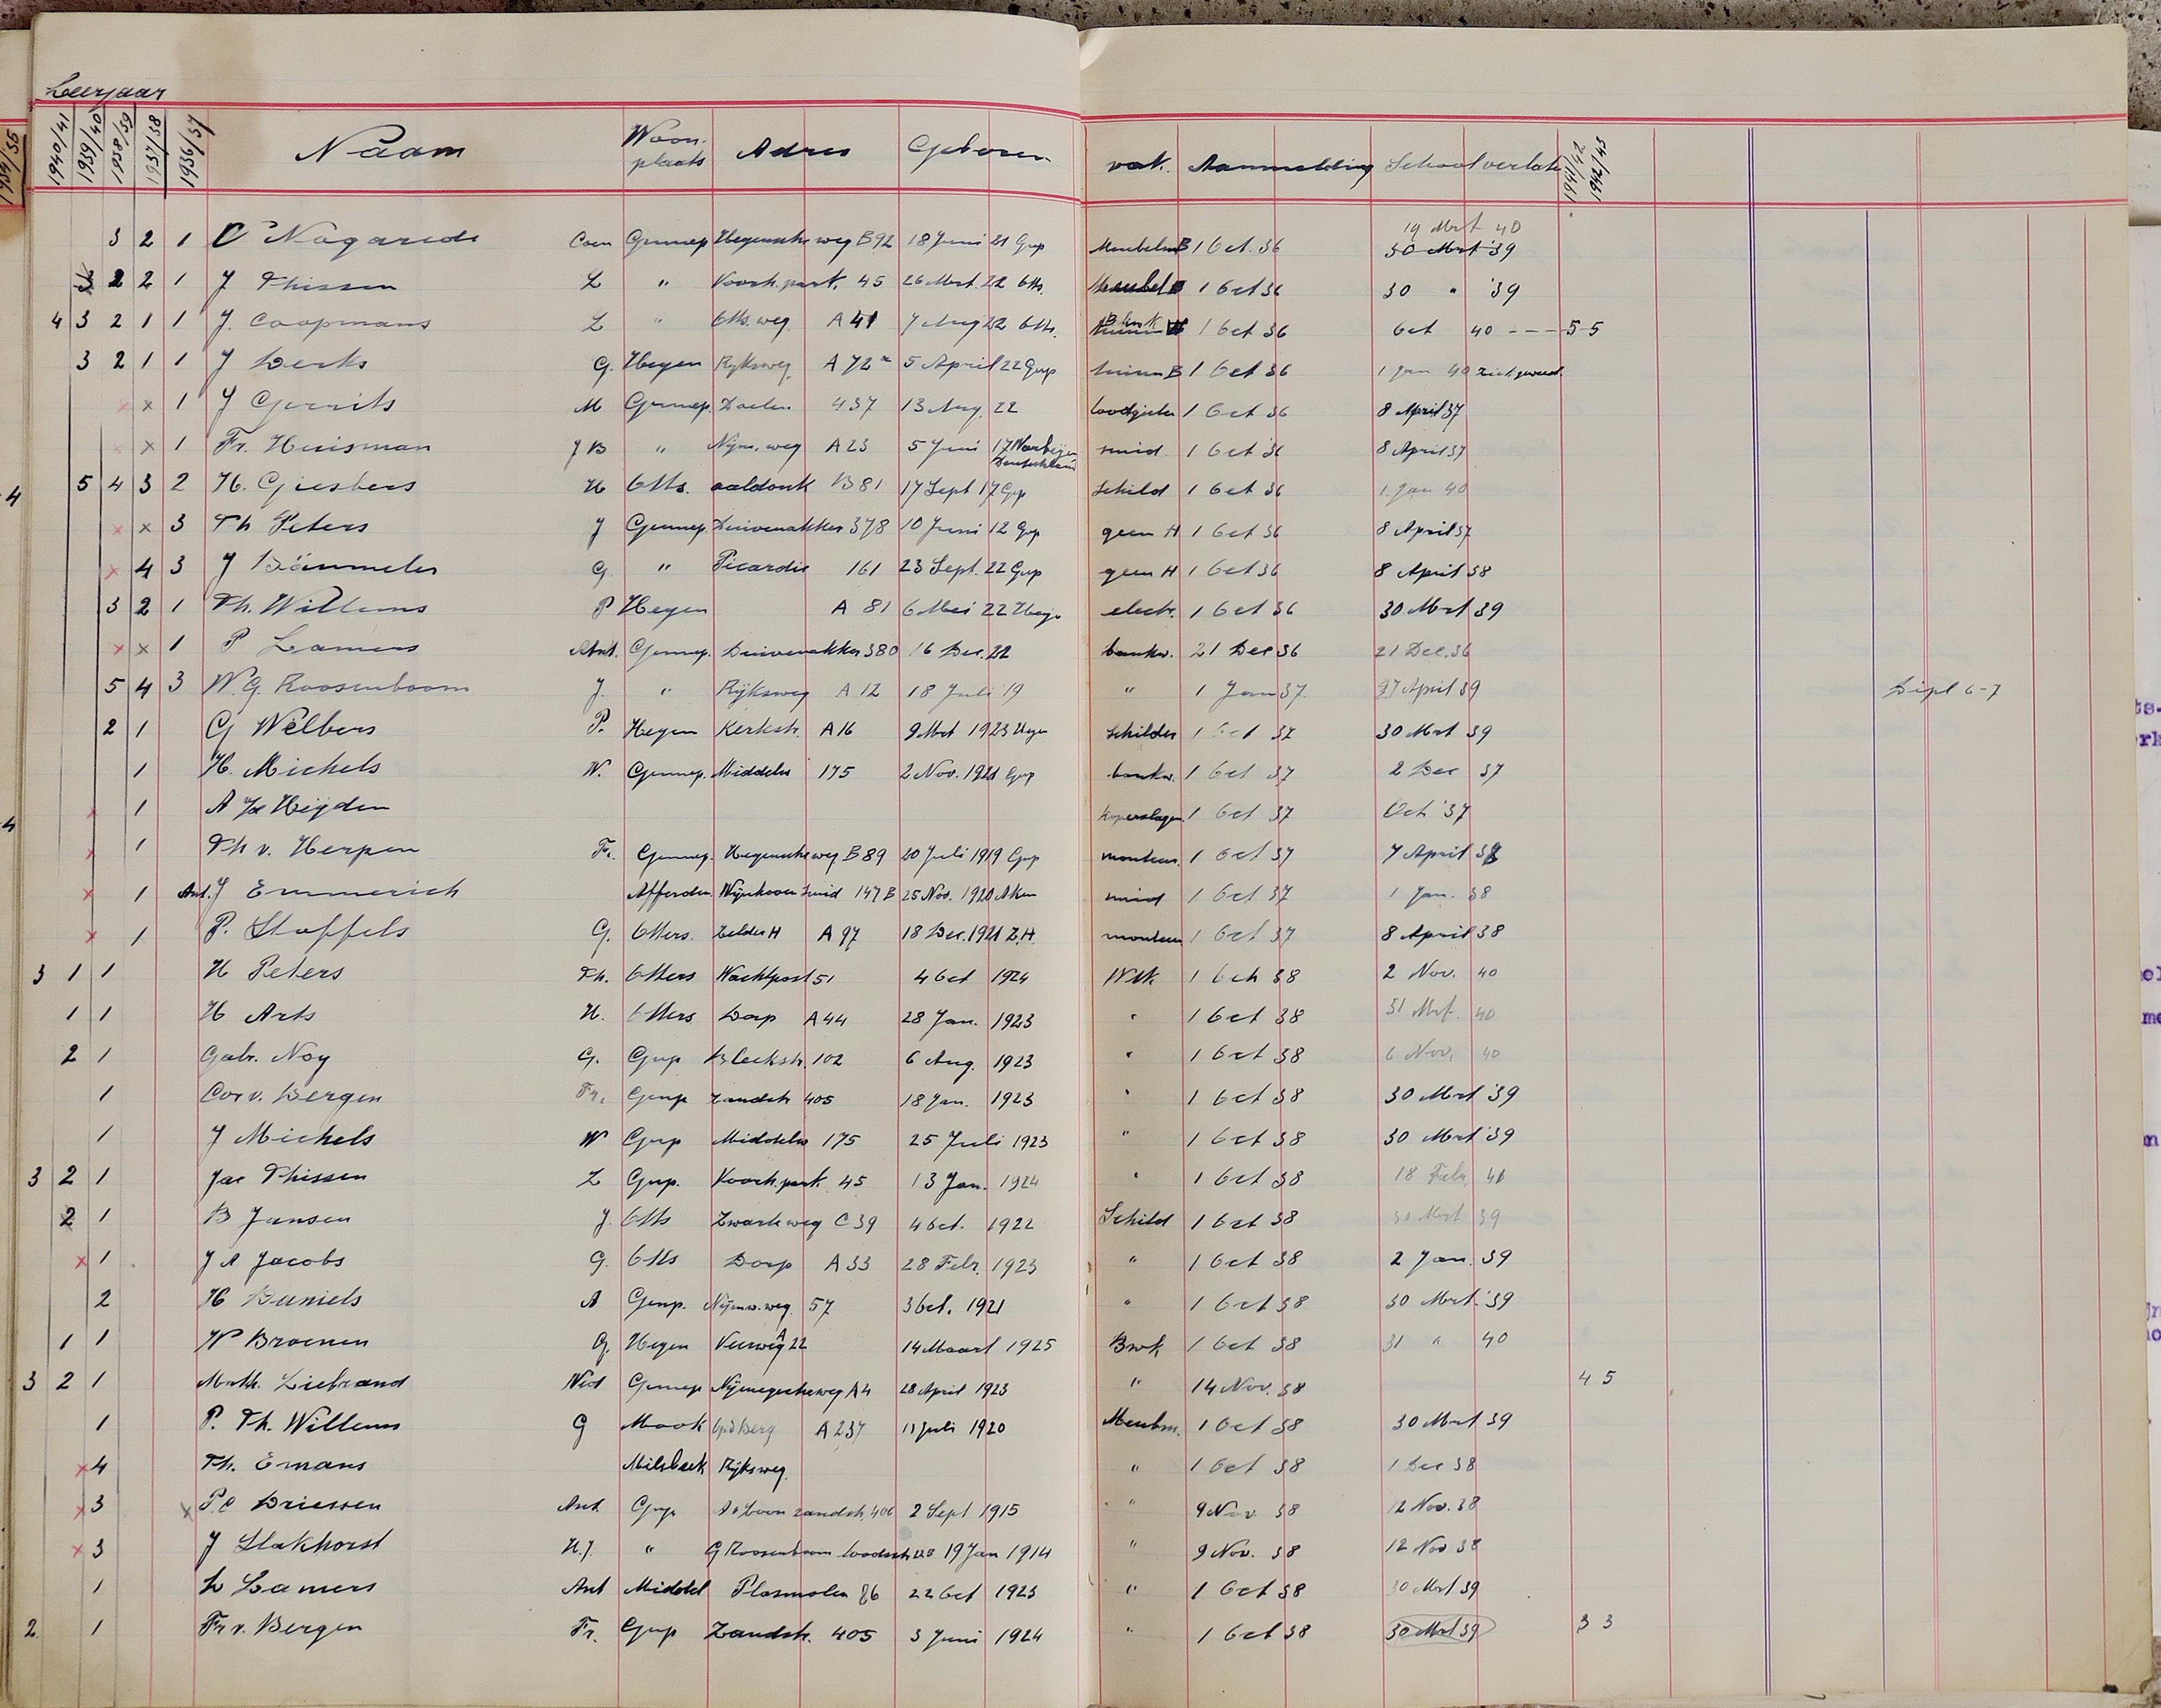 Leerjaar
1940/41 1939/40 1938/39 1937/38 1936/37 Naam Woon-plaats Adres Geboren vak. Aanmelding School verlaten 1941/42 1942/43
3 2 1 C Nogarede Coen Gennep Heyensche weg B92 18 Juni 21 Gnp MeubelmB 1 Oct. 36 19 Mrt 40 30 Mrt '39
3 2 2 1 J Thissen L " Voorh.park. 45 26 Mrt. 22 Otts. Meubel 1 Oct 36 30 " '39
4 3 2 1 1 J. Coopmans L " Otts. weg. A 41 7 Aug 22 Otts. Bwk 1 Oct 36 Oct 40 - - - 5-5
3 2 1 1 J Derks G. Heyen Ryksweg A 72a 5 April 22 Gnp timm B 1 Oct 36 1 Jan 40
x x 1 J Gerrits M Gennep. Doelen 437 13 Aug. 22 loodgieter 1 Oct 36 8 April 37
x x 1 Fr. Huisman J B " Nijm. weg A 23 5 Juni 17 Deutschland smid 1 Oct '36 8 April 37
4 5 4 3 2 H. Giesbers H Otts. aaldonk B 81 17 Sept 17 Gnp Schild 1 Oct 36 1 Jan 40
x x 3 Th Peters J Gennep. Duivenakker 378 10 Juni 12 Gnp geen H 1 Oct 36 8 April 37
x 4 3 J Bömmeler G. " Picardie 161 23 Sept. 22 Gnp geen H 1 Oct 36 8 April 38
3 2 1 Th. Willems P Heyen A 81 6 Mei 22 Heyen electr. 1 Oct 36 30 Mrt 39
x x 1 P Lamers Ant. Gennep. Duivenakker 380 16 Dec. 22 bankw. 21 Dec 36 21 Dec. 36
5 4 3 W. G. Roosenboom J. " Rijksweg A 12 18 Juli 19 " 1 Jan 37. 27 April 39 Dipl 6-7
2 1 G Welbers P. Heyen Kerkstr. A 16 9 Mrt 1923 Heyen Schilder 1 Oct 37 30 Mrt 39
1 H. Michels W. Gennep. Middelw 175 2 Nov. 1921 Gnp bankw. 1 Oct 37 2 Dec 37
x 1 A v/d Heijden koperslager 1 Oct 37 Oct '37
4 x 1 Th v. Herpen Fr. Gennep. Heyensche weg B 89 20 Juli 1919 Gnp monteur. 1 Oct 37 7 April 38
x 1 Ant. J Emmerich Afferden Wijnhoven Smid 147 B 25 Nov. 1920 Aken smid 1 Oct 37 1 Jan. 38
x 1 P. Stoffels G. Otters. Zelder H A 97 18 Dec. 1921 Z.H. monteur 1 Oct 37 8 April 38
3 1 1 H Peters Th. Otters Wachtpost 51 4 Oct 1924 Wtk 1 Oct 38 2 Nov. 40
1 1 H Arts H. Otters Dorp A 44 28 Jan. 1923 " 1 Oct 38 31 Mrt. 40
2 1 Gabr. Noy G. Gnp Bleekstr. 102 6 Aug. 1923 " 1 Oct 38 6 Nov. 40
1 Cor v. Bergen Fr. Genp Zandstr 405 18 Jan. 1923 " 1 Oct 38 30 Mrt '39
1 J Michels W Gnp Middelw 175 25 Juli 1923 " 1 Oct 38 30 Mrt '39
3 2 1 Jac Thissen L Gnp. Voorh.park 45 13 Jan. 1924 " 1 Oct 38 18 Febr. 41
2 1 B Jansen J. Otts Zwarteweg C 39 4 Oct. 1922 Schild 1 Oct 38 30 Mrt 39
x 1 J A Jacobs G. Otts Dorp A 33 28 Febr. 1923 " 1 Oct 38 2 Jan. 39
2 H Daniels A Genp. Nijmw. weg. 57 3 Oct. 1921 " 1 Oct 38 30 Mrt. '39
1 1 W Broenen G. Heyen Veerweg A 22 14 Maart 1925 Bwk 1 Oct 38 31 " 40
3 2 1 Math. Liebrand Wed Gennep Nijmegscheweg A 4 28 April 1923 " 14 Nov. 38 4 5
1 P. Th. Willems G Mook Op d Berg A 237 11 Juli 1920 Meubm. 1 Oct 38 30 Mrt 39
x 4 Th. Emans Milsbeek Rijksweg. " 1 Oct 38 1 Dec 38
x 3 x P. C Driessen Ant. Gnp. zandstr. 406 2 Sept 1915 " 9 Nov 38 12 Nov. 38
x 3 J Slakhorst H. J. " G Roosenboom 19 Jan 1914 " 9 Nov. 38 12 Nov 38
1 L Lamers Ant Middel Plasmolen 86 22 Oct 1923 " 1 Oct 38 30 Mrt 39
2 1 Fr v. Bergen Fr. Gnp Zandstr. 405 3 Juni 1924 " 1 Oct 38 30 Mrt 39 3 3